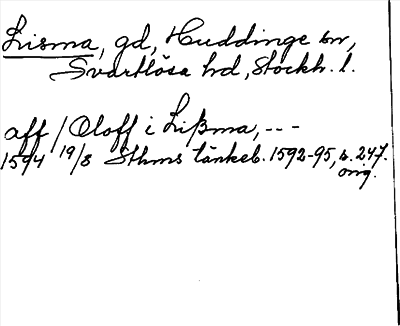 Lisma, gd, Huddinge sn,
Svartlösa hd, Stockh. l.
aff / Oloff i Lißma, ---
1594 19/8 Sthms tänkeb. 1592-95, s. 247.
orig.